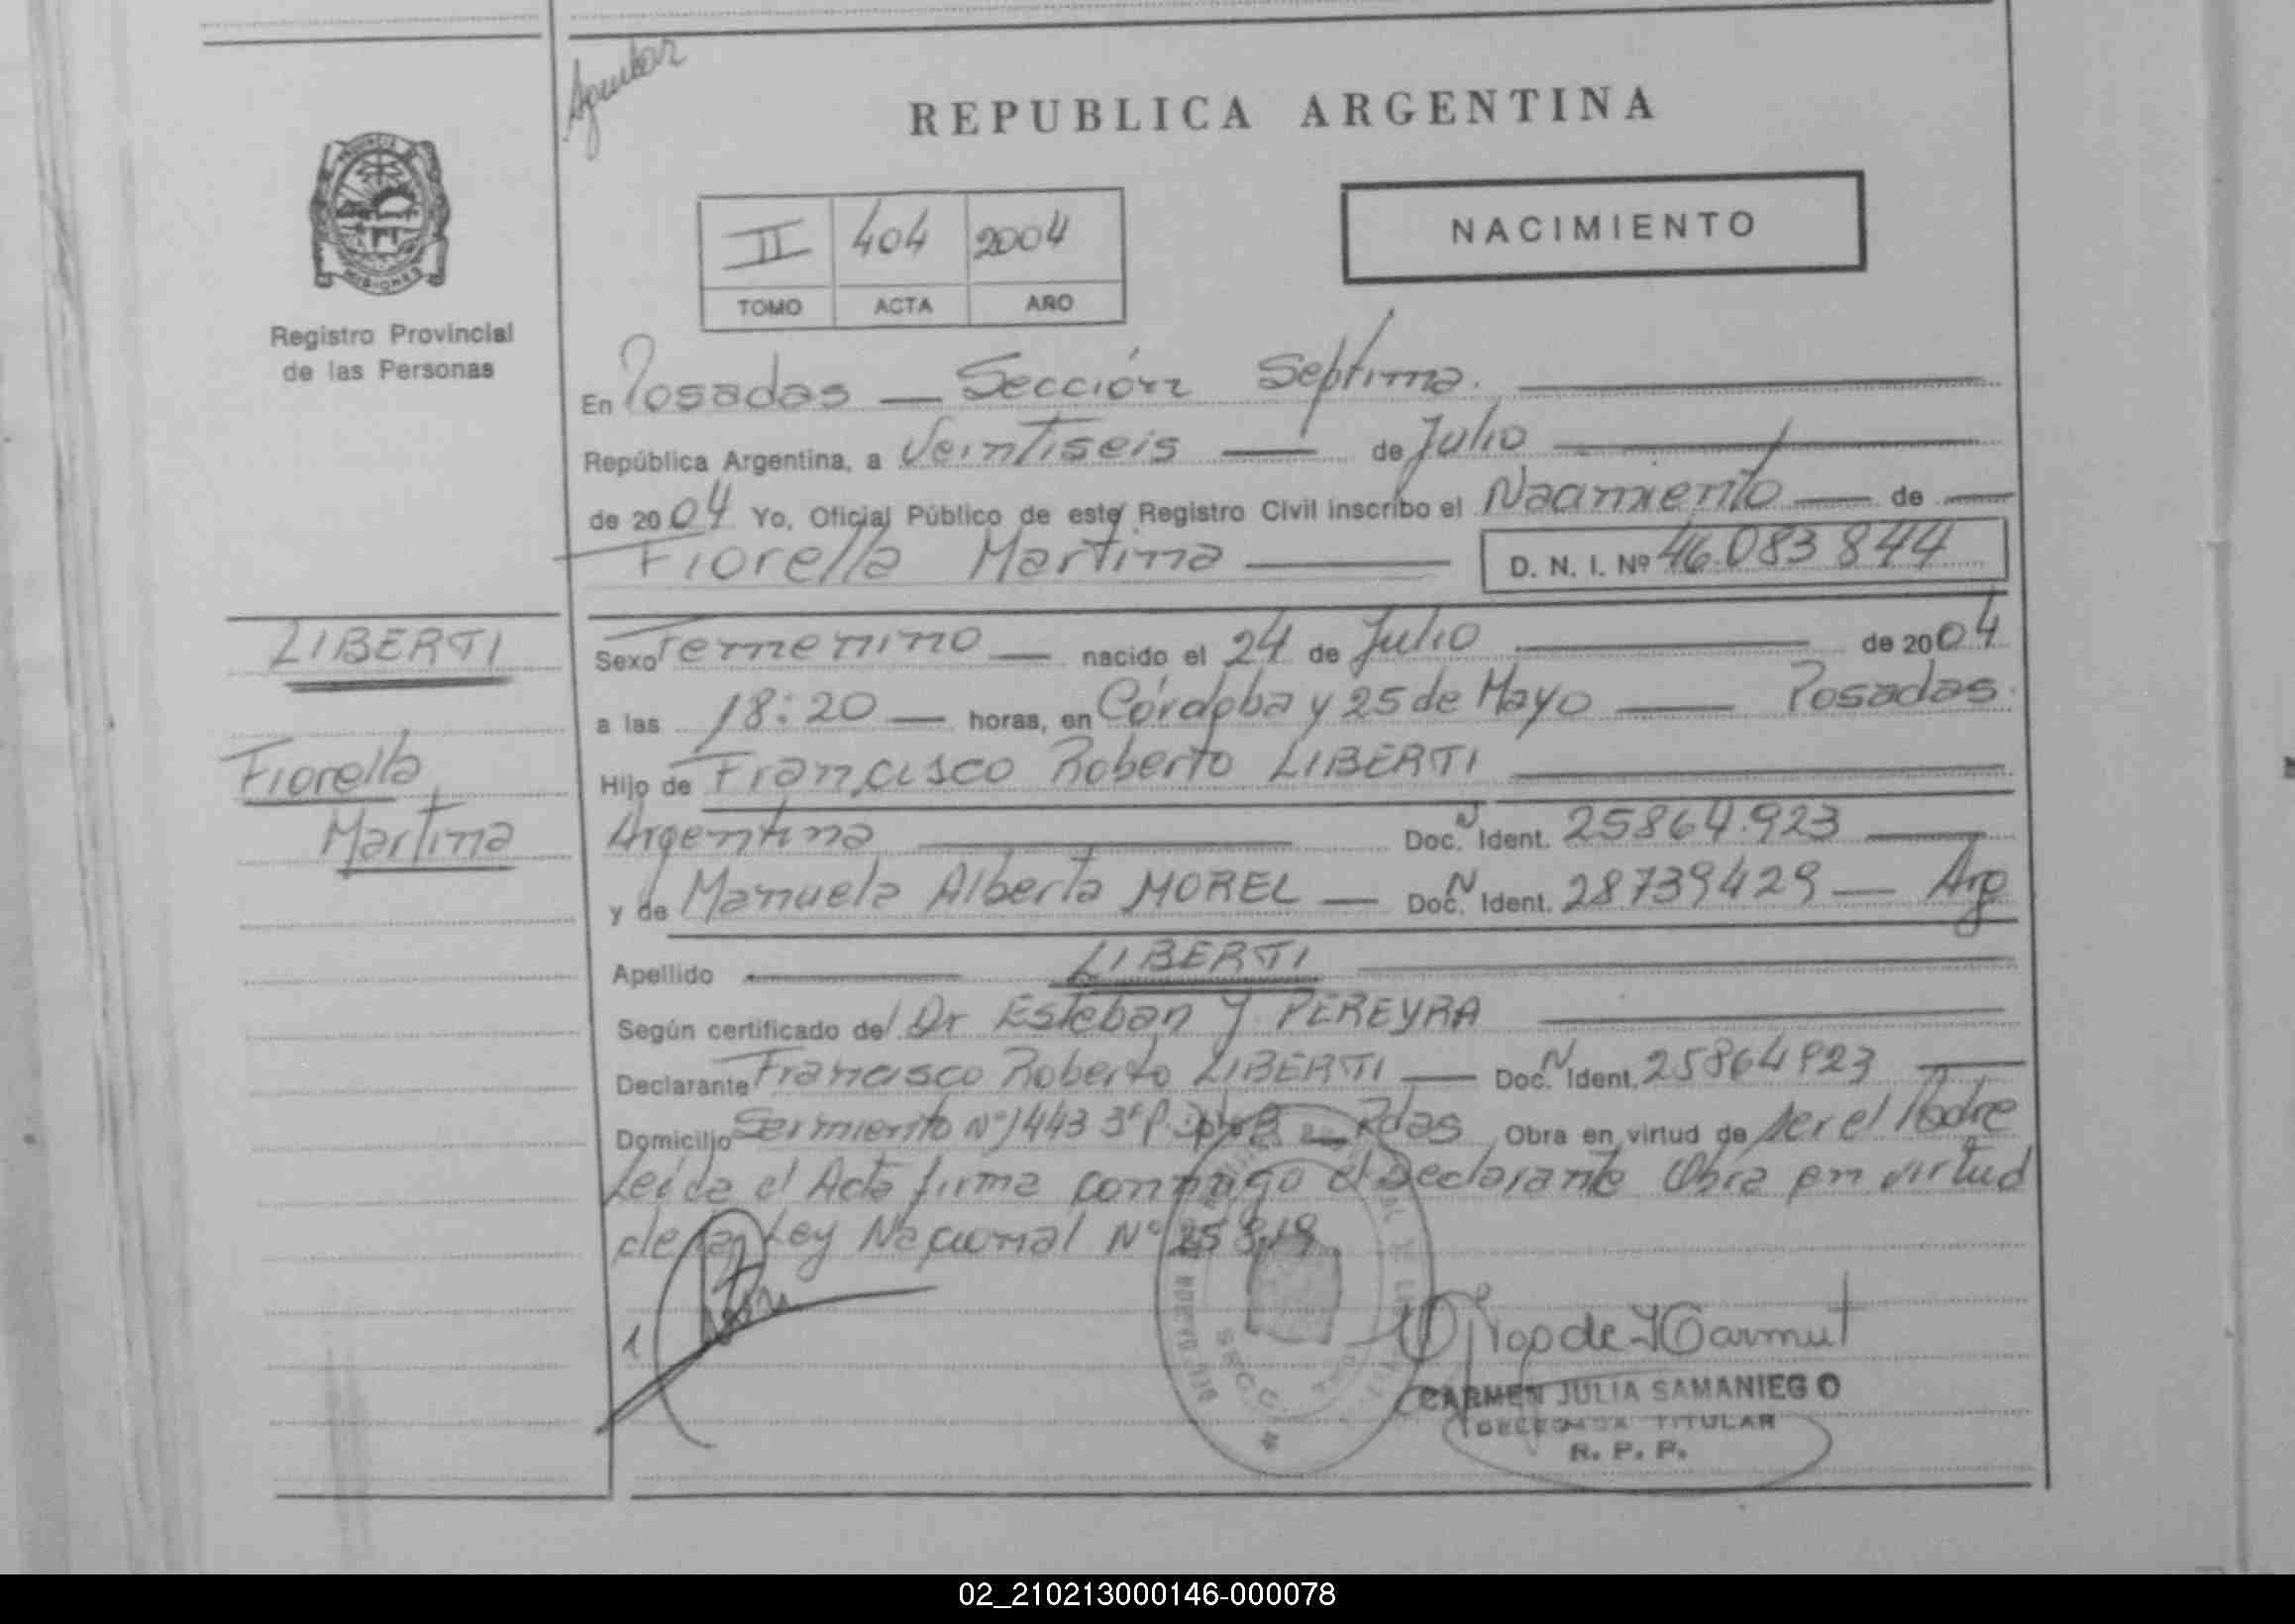 Aguilar
REPUBLICA ARGENTINA
PROVINCIA DE MISIONES
Registro Provincial
de las Personas
II 404 2004
TOMO ACTA AÑO
NACIMIENTO
En Posadas — Sección Septima.
República Argentina, a Veintiseis — de Julio
de 2004 Yo, Oficial Público de este Registro Civil inscribo el Nacimiento — de —
Fiorella Martina — D. N. I. Nº 46.083844
LIBERTI
Fiorella
Martina
Sexo Femenino — nacido el 24 de Julio — de 2004
a las 18:20 — horas, en Córdoba y 25 de Mayo — Posadas
Hijo de Francisco Roberto LIBERTI
Argentina — Doc. N Ident. 25864.923 —
y de Manuela Alberta MOREL — Doc. N Ident. 28739429 — Arg
Apellido — LIBERTI
Según certificado del Dr Esteban J. PEREYRA
Declarante Francisco Roberto LIBERTI — Doc. N Ident. 25864923 —
Domicilio Sarmiento Nº 1443 3º P. — Pdas Obra en virtud de ser el Padre
Leída el Acta firma conmigo el Declarante Obra en virtud
de la Ley Nacional Nº 25819
CARMEN JULIA SAMANIEGO
DELEGADA TITULAR
R. P. P.
02_210213000146-000078